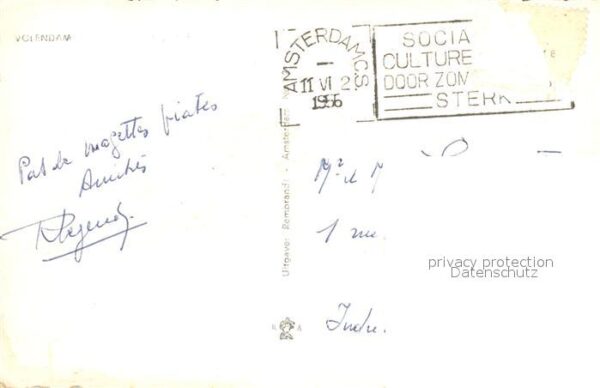 VOLENDAM
AMSTERDAM C.S.
11 VI 2
1956
SOCIA
CULTURE
DOOR ZOM
STERK
Pas de mogettes frites
Amitiés
Uitgaver Rembrandt - Amsterdam
Mr et M
1 rue
Indre.
privacy protection
Datenschutz